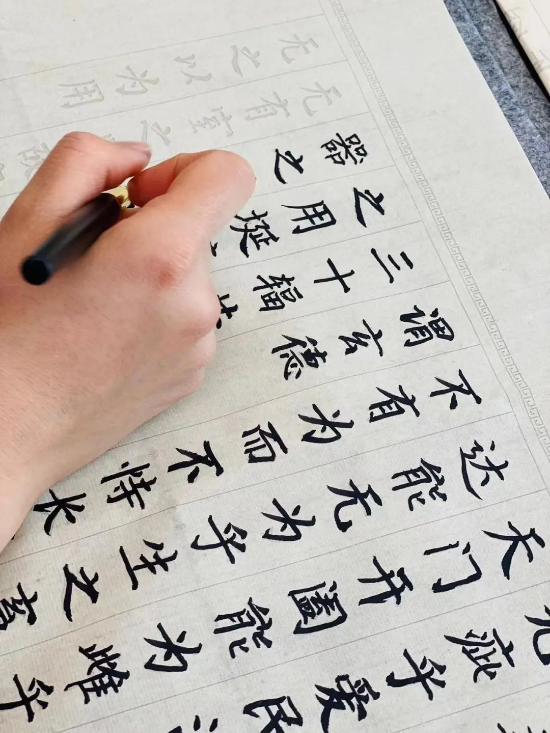 无疵乎爱民
天门开阖能为雌乎
达能无为乎生之畜
不有为而不恃长
谓玄德
三十辐
之用埏
器之
无有室之
无之以为用